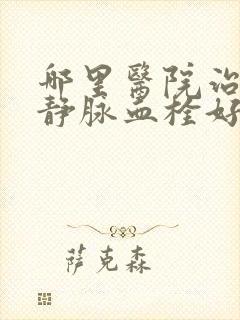 哪里醫院治
静脉血栓好
萨克森